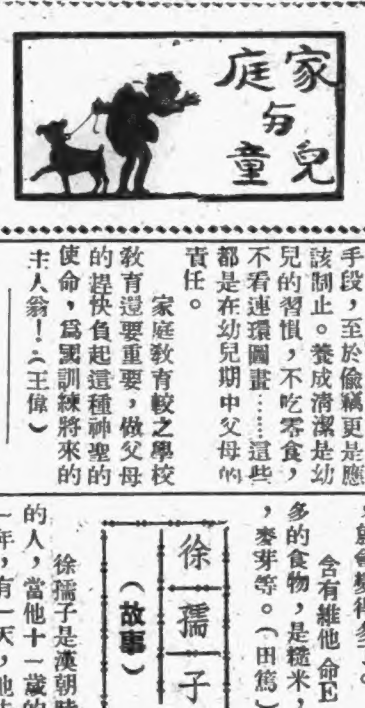 家庭
与
兒童
手段,至於偷竊更是應
該制止。養成清潔是幼
兒的習慣,不吃零食,
不看連環圖畫……這些
都是在幼兒期中父母的
責任。
家庭教育較之學校
教育還要重要,做父母
的趕快負起這種神聖的
使命,爲國訓練將來的
主人翁!(王偉)
含有維他命E
多的食物,是糙米,
,麥芽等。(田篤)
徐孺子
(故事)
徐孺子是漢朝時
的人,當他十一歲的
一年,有一天,他